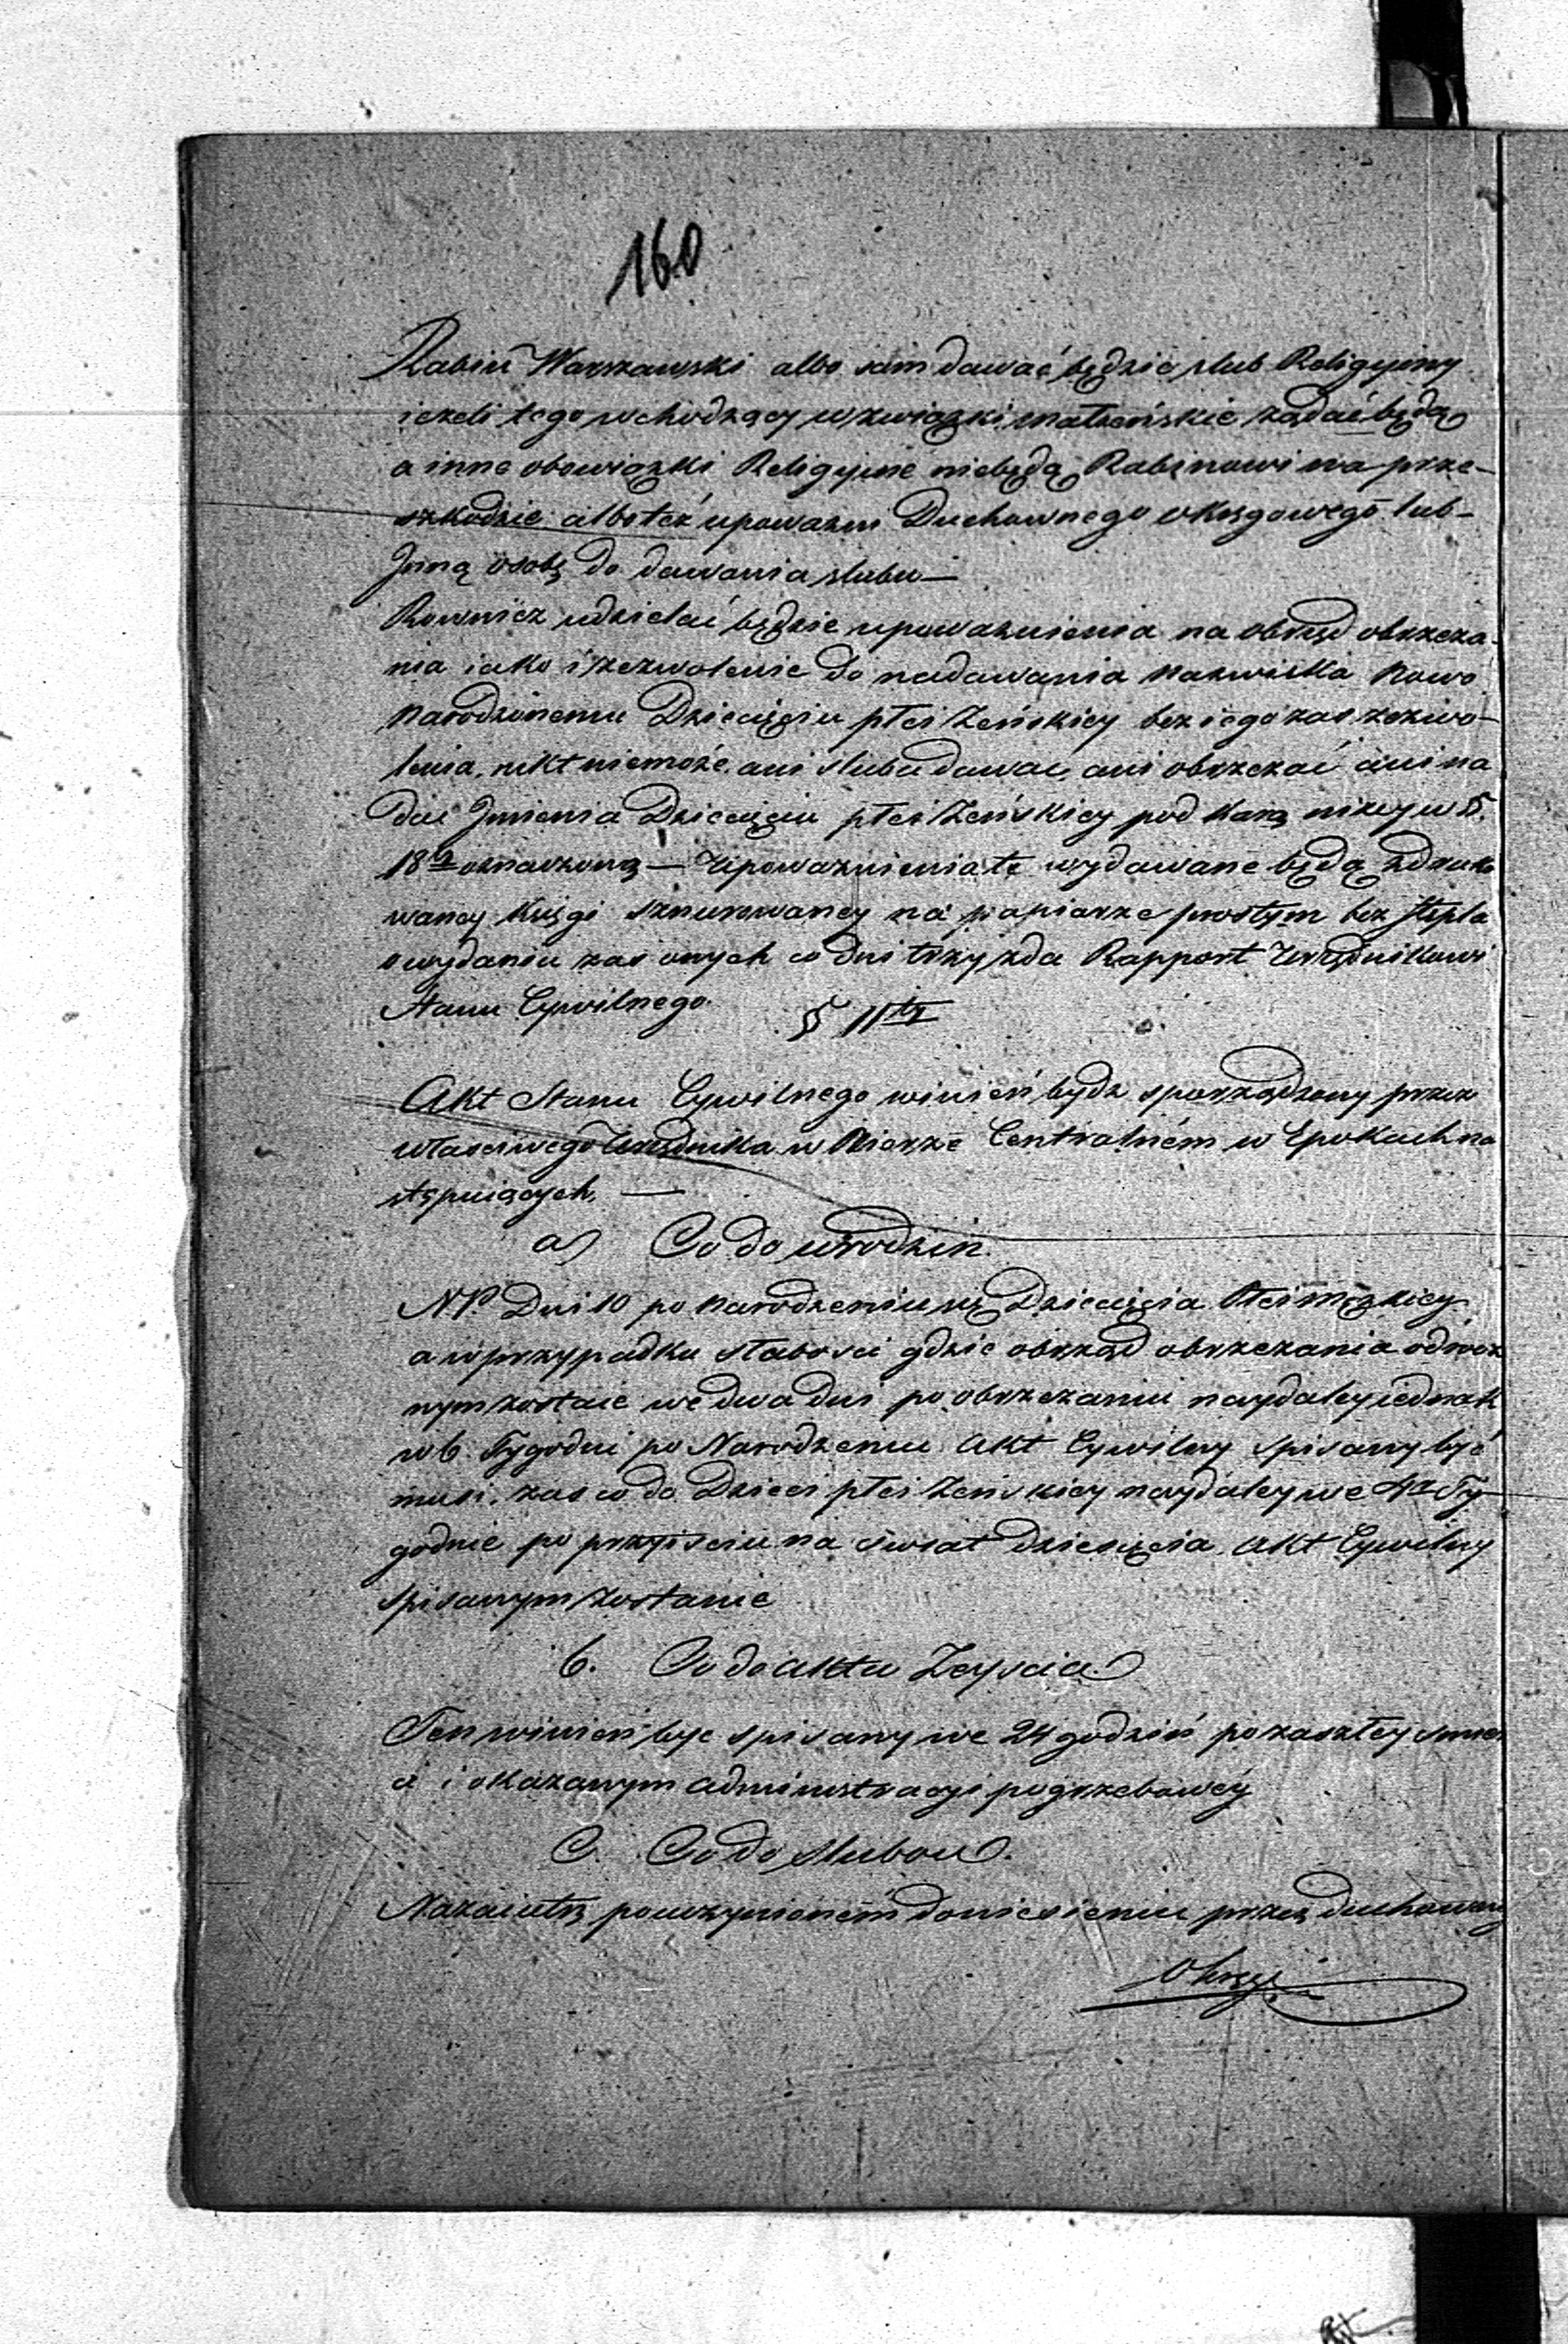 160
Rabin Warszawski albo sam dawać będzie slub Religyiny
ieżeli tego wchodzący w związki małżeńskie żądać będą
a inne obowiązki Religyine niebędą Rabinowi na prze-
szkodzie albo też upoważni Duchownego okręgowego lub-
Jnną osobę do dawania slubu —
Rownież udzielać będzie upoważnienia na obrząd obrzeza-
nia iako i zezwolenie do nadawania Nazwiska Nowo
Narodzonemu Dziecięciu płci Żeńskiey bez iego zas zezwo-
lenia, nikt niemoże ani slubu dawać, ani obrzezać ani na
dać Jmienia Dziecięciu płci Żeńskiey pod karą niżey w §.
18 oznaczoną — Upoważnienia te wydawane będą z druko
waney Księgi sznurowaney na papierze prostym bez stępla
o wydaniu zas onych co dni trzy zda Rapport Urzędnikowi
Stanu Cywilnego.
§ 11ty
Akt Stanu Cywilnego winień bydz sporządzony przez
właściwego Urzędnika w Biorze Centralném w Epokach na
stępuiących, —
a) Co do urodzin.
NP Dni 10 po Narodzeniu się Dziecięcia Płci Męzkiey
a w przypadku słabosci gdzie obrząd obrzezania odrocz
nym zostaie we dwa dni po obrzezaniu naydaley iednak
w 6 Tygodni po Narodzeniu Akt Cywilny spisany być
musi, zas co do Dzieci płci Żeńskiey naydaley we 4 Ty
godnie po przyisciu na świat dziecięcia Akt Cywilny
spisanym zostanie
b. Co do aktu Zeyscia
Ten winien byc spisany we 24 godzin po zaszłey smier
ci i okazanym administracyi pogrzebowéy
C. Co do Slubow.
Nazaiutrz po uczynioném doniesieniu przez duchowny